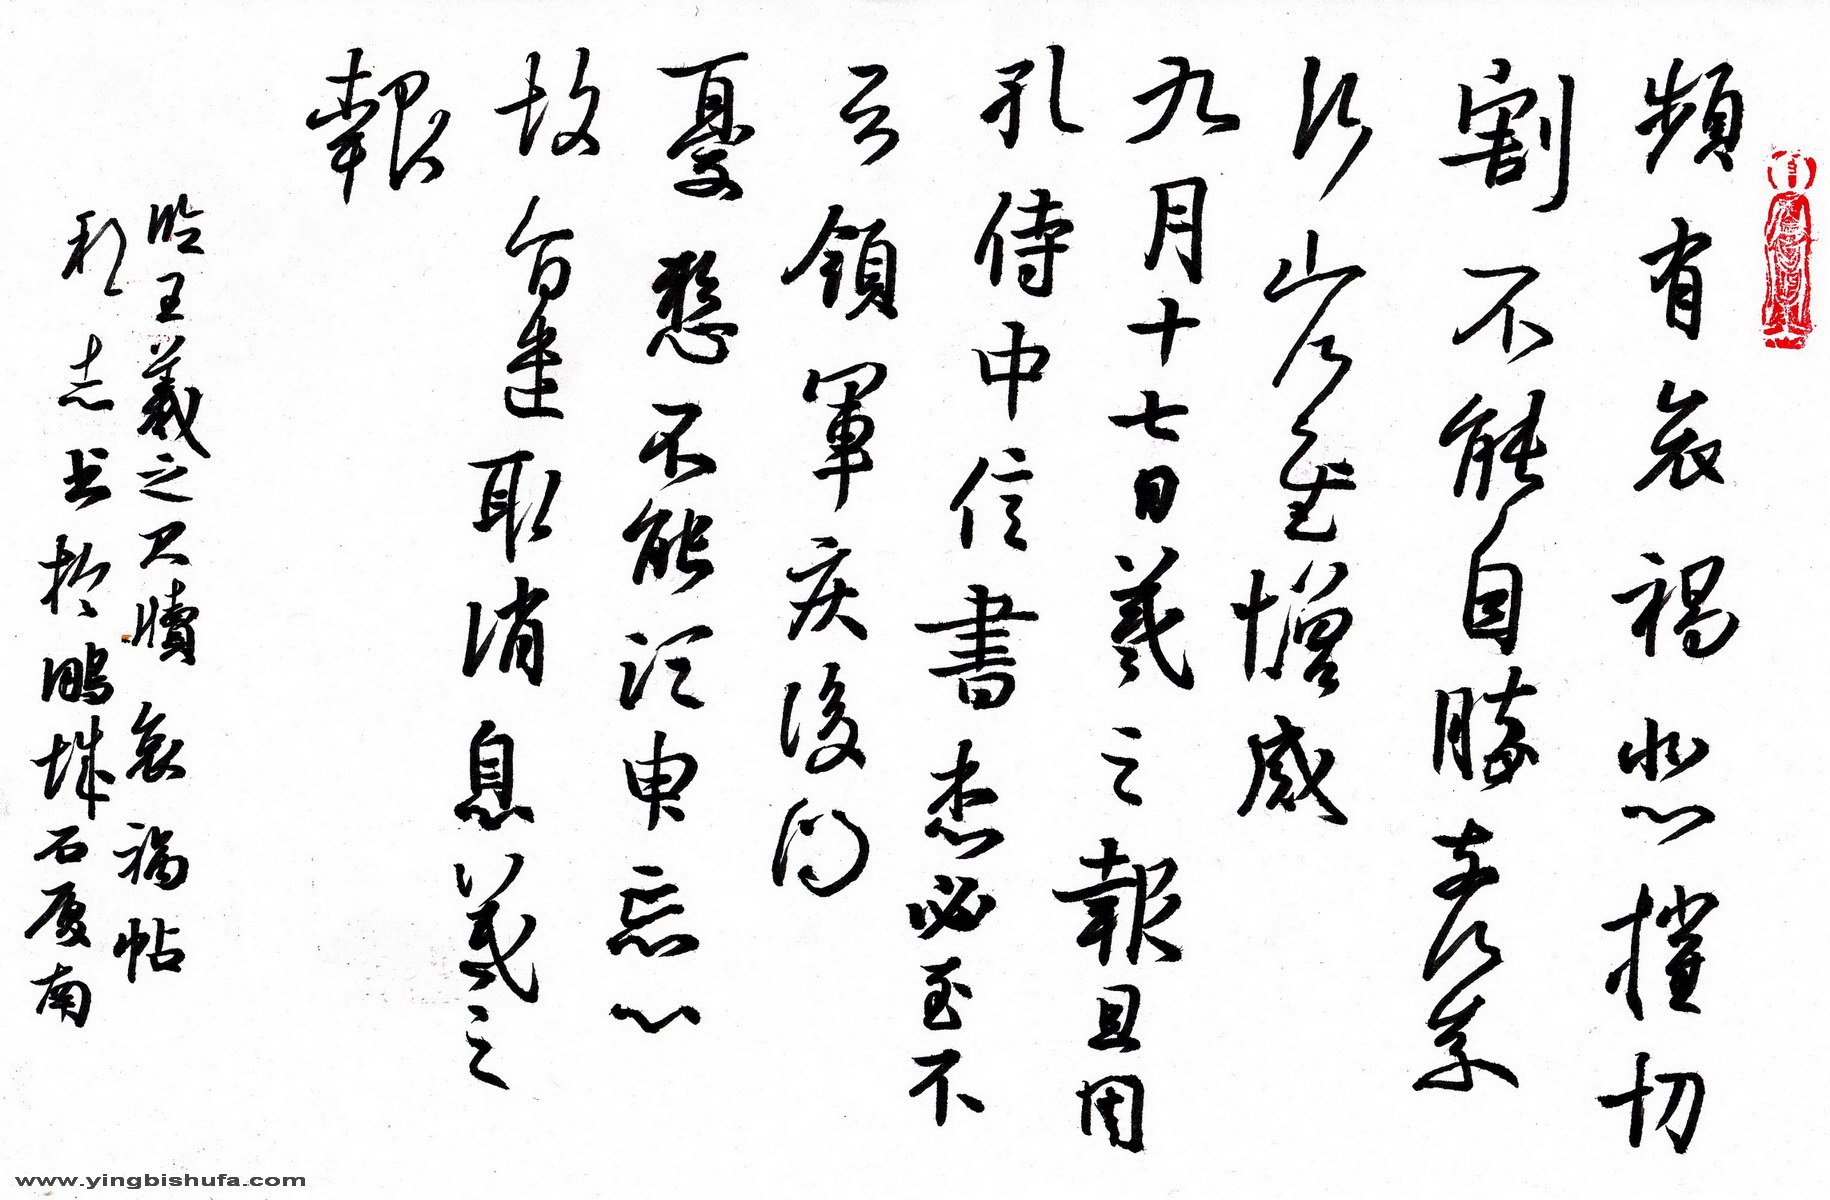 頻有哀禍悲摧切
割不能自勝奈何奈
何省慰增感
九月十七日羲之報且因
孔侍中信書想必至不
知領軍疾後問
憂懸不能須臾忘心
故旨遣取消息羲之
報
临王羲之尺牘哀禍帖
志书於鹏城石厦南
www.yingbishufa.com